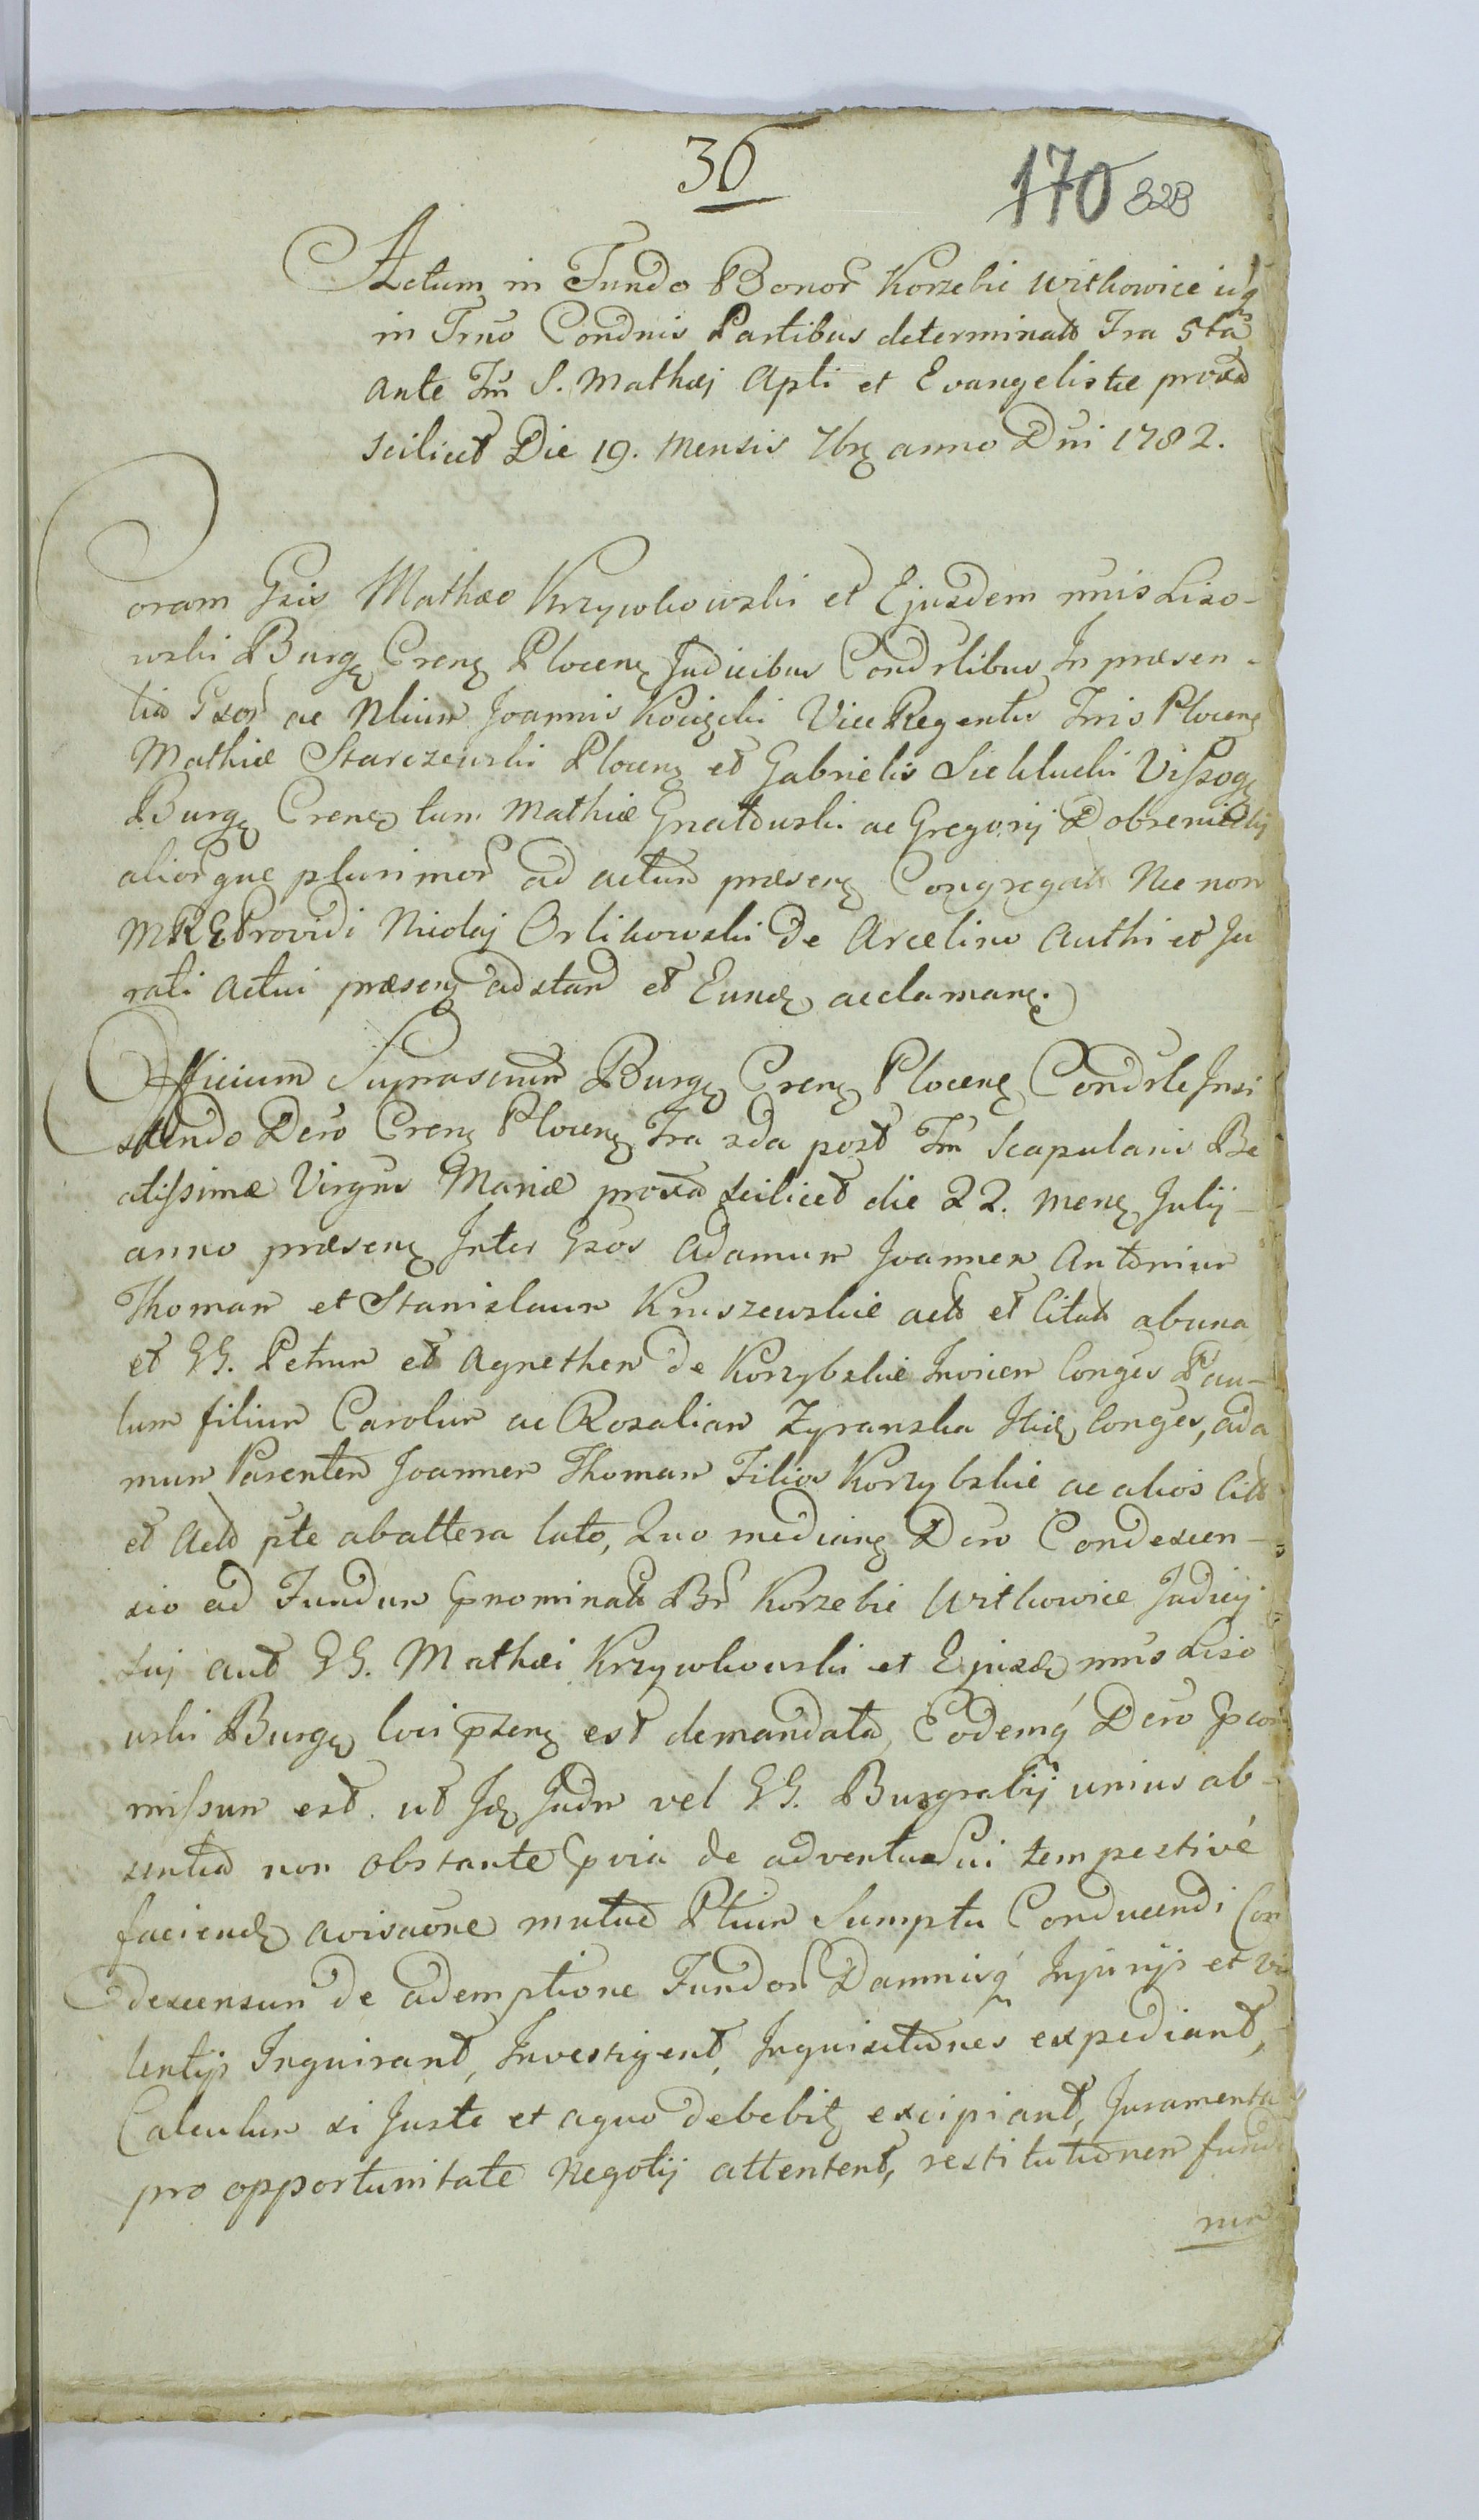 36
170 828
Actum in Fundo Bonor Korzebie Witkowice iq
in Trno Condnis Partibus determinato Fra 5ta
ante Fm S. Mathæi Apli et Evangelistæ proxa
scilicet Die 19. Mensis 7bris anno Dni 1782.
Coram Gsis Mathæo Krzywkowski et Ejusdem nnis Liso-
wski Burg Crens Plocens Judicibus Condslibus In præsen-
tia Gsor ac Nlium Joannis Kocięcki Vice Regentis Tris Plocens
Mathiæ Starczewski Plocens et Gabrielis Sieklucki Vissog
Burg Crens tum Mathiæ Gnatowski ac Gregorij Dobrenicki
aliorque plurimor ad actum præsens Congregat Nec non
MRE Providi Nicolaj Orlikowski de Arcelino Authi et Ju
rati actui præsens adstan et Eund acclamans.
Officium Suprascrum Burg Crens Plocens Condsle Insi
stendo Dero Crens Plocens Fra 2da post Fm Scapularis Be
atissimæ Virgnis Mariæ proxa scilicet die 22. mens Julij
anno præsens Inter Gsos Adamum Joannem Antonium
Thomam et Stanislaum Kruszewskie acto et Citato ab una
et GG. Petrum et Agnethem de Korzybskie Invicem Conges Pau-
lum filium Carolum ac Rosaliam Zyranska Itid Conges, Ada
mum Parentem Joannem Thomam Filios Korzybskie ac alios Cito
et Acto pte ab altera lato, Quo medians Dero Condescen-
sio ad Fundum pnominato Br Korzebie Witkowice Judicij
sui aut GG. Mathæi Krzywkowski et Ejusd nnis Liso
wski Burg loci pzens est demandata, Eodemq Dero pcom
missum est. ut Id Judm vel GG. Burgrabij unius ab-
sentia non obstante pvia de adventu sui tempestivé
faciend avisaone mutuo Ptium Sumptu Conducendi Con
descensum de ademptione Fundor Damnisq Injurijs et Vio
lentijs Inquirant, Investigent, Inquisitiones expediant,
Calculum si Juste et aquo debebit excipiant, Juramenta
pro opportunitate Negotij attentent, restitutionem fundo
rum